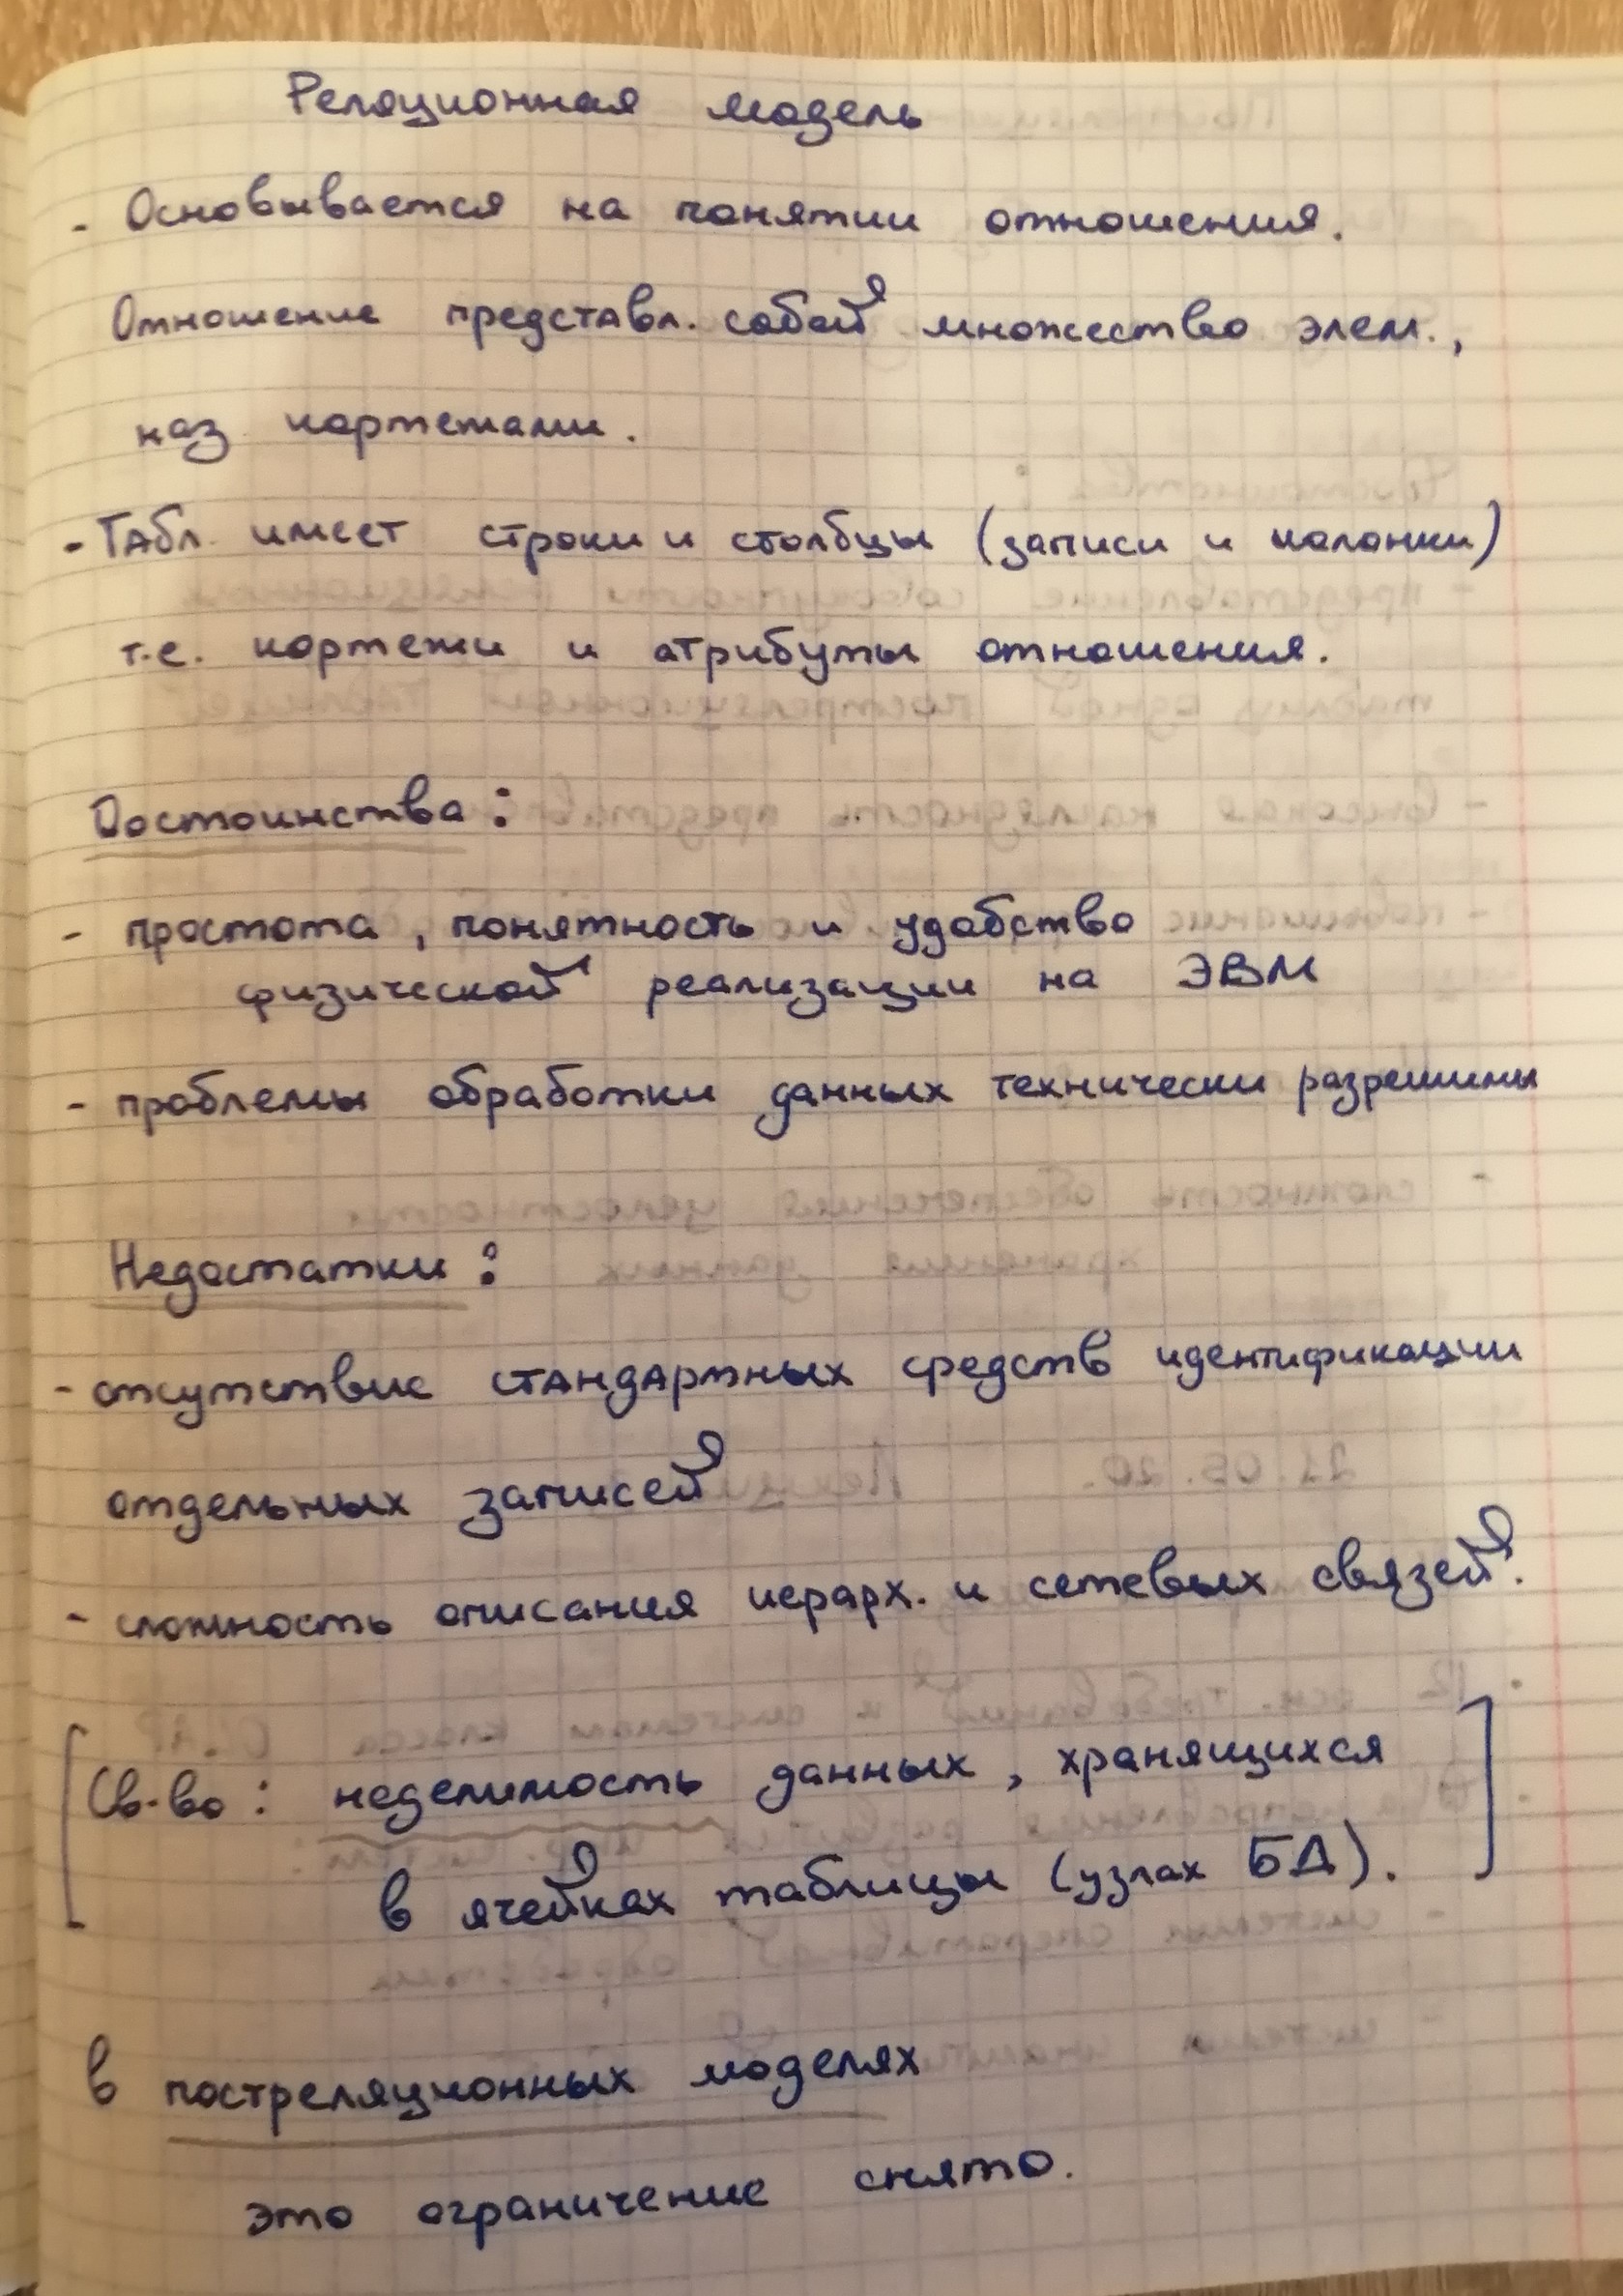 Реляционная модель
- Основывается на понятии отношения.
Отношение представл. собой множество элем.,
наз кортежами.
- Табл. имеет строки и столбцы (записи и колонки)
т.е. кортежи и атрибуты отношения.
Достоинства:
- простота, понятность и удобство
физической реализации на ЭВМ
- проблемы обработки данных технически разрешимы
Недостатки:
- отсутствие стандартных средств идентификации
отдельных записей
- сложность описания иерарх. и сетевых связей.
[Св-во: неделимость данных, хранящихся
в ячейках таблицы (узлах БД).]
в постреляционных моделях
это ограничение снято.